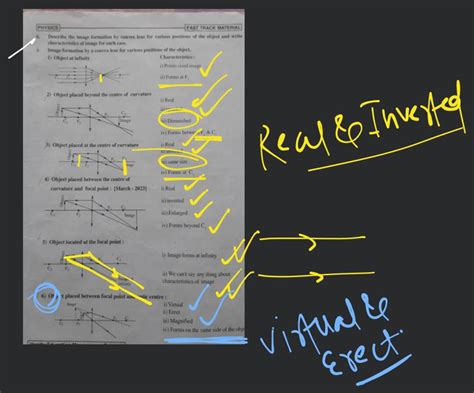 PHYSICS
FAST TRACK MATERIAL
6. Describe the image formation by convex lens for various positions of the object and write
characteristics of image for each case.
Image formation by a convex lens for various positions of the object.
1) Object at infinity
Characteristics :
i) Points sized image
ii) Forms at F
2) Object placed beyond the centre of curvature
i) Real
iii) Diminished
iv) Forms between F & C
3) Object placed at the centre of curvature
i) Real
iii) same size
iv) Forms at C
4) Object placed between the centre of
curvature and focal point : [March - 2023]
i) Real
ii) inverted
iii) Enlarged
iv) Forms beyond C
Image
5) Object located at the focal point :
i) Image forms at infinity
ii) We can't say any thing about
characteristics of image
6) Object placed between focal point and centre :
i) Virtual
ii) Erect
iii) Magnified
iv) Forms on the same side of the
Real & Inverted
Virtual &
Erect.